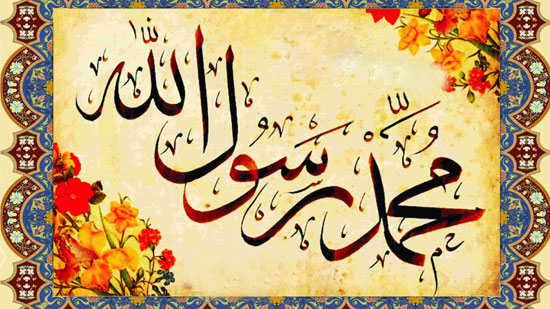 مُحَمَّدْ رَسُولُ الله